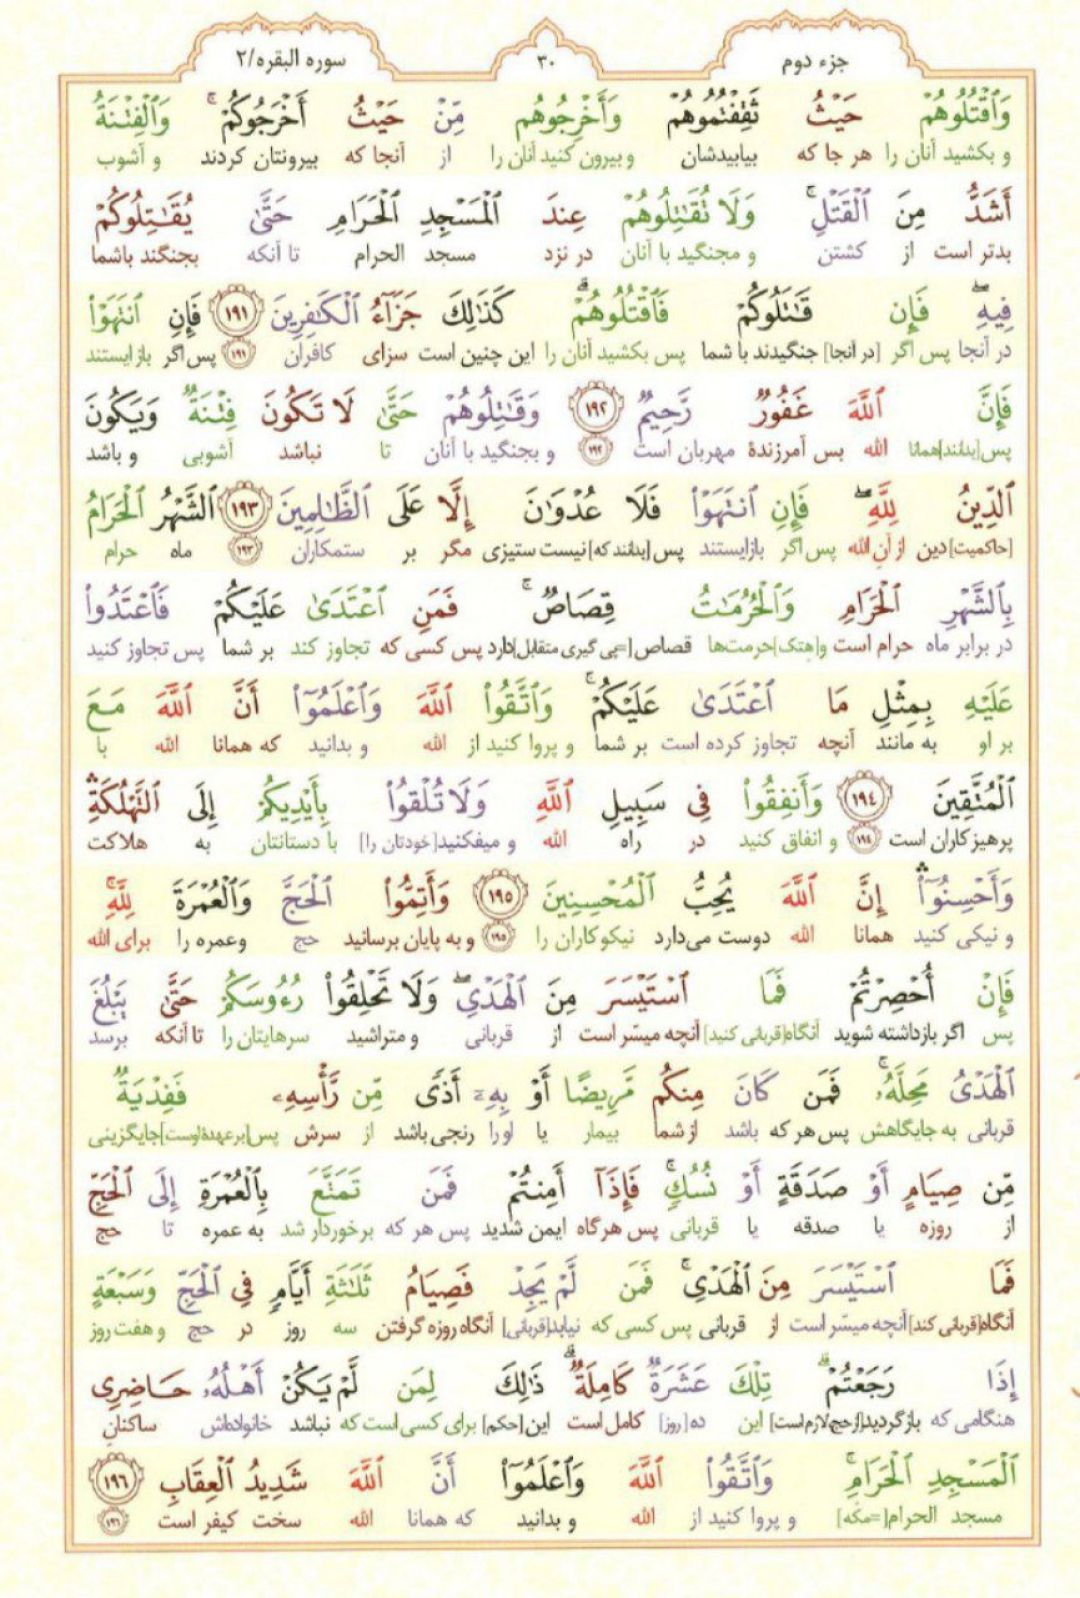 جزء دوم ۳۰ سوره البقره/۲
وَٱقۡتُلُوهُمۡ حَيۡثُ ثَقِفۡتُمُوهُمۡ وَأَخۡرِجُوهُم مِّنۡ حَيۡثُ أَخۡرَجُوكُمۡۚ وَٱلۡفِتۡنَةُ
و بکشید آنان را هر جا که بیابیدشان و بیرون کنید آنان را از آنجا که بیرونتان کردند و آشوب
أَشَدُّ مِنَ ٱلۡقَتۡلِۚ وَلَا تُقَٰتِلُوهُمۡ عِندَ ٱلۡمَسۡجِدِ ٱلۡحَرَامِ حَتَّىٰ يُقَٰتِلُوكُمۡ
بدتر است از کشتن و مجنگید با آنان در نزد مسجد الحرام تا آنکه بجنگند باشما
فِيهِۖ فَإِن قَٰتَلُوكُمۡ فَٱقۡتُلُوهُمۡۗ كَذَٰلِكَ جَزَآءُ ٱلۡكَٰفِرِينَ ١٩١ فَإِنِ ٱنتَهَوۡاْ
در آنجا پس اگر [در آنجا] جنگیدند با شما پس بکشید آنان را این چنین است سزای کافران ۱۹۱ پس اگر باز ایستند
فَإِنَّ ٱللَّهَ غَفُورٞ رَّحِيمٞ ١٩٢ وَقَٰتِلُوهُمۡ حَتَّىٰ لَا تَكُونَ فِتۡنَةٞ وَيَكُونَ
پس[بدانند]همانا الله بس آمرزندهٔ مهربان است ۱۹۲ و بجنگید با آنان تا نباشد آشوبی و باشد
ٱلدِّينُ لِلَّهِۖ فَإِنِ ٱنتَهَوۡاْ فَلَا عُدۡوَٰنَ إِلَّا عَلَى ٱلظَّٰلِمِينَ ١٩٣ ٱلشَّهۡرُ ٱلۡحَرَامُ
[حاکمیت] دین از آن الله پس اگر بازایستند پس[بدانند که]نیست ستیزی مگر بر ستمکاران ۱۹۳ ماه حرام
بِٱلشَّهۡرِ ٱلۡحَرَامِ وَٱلۡحُرُمَٰتُ قِصَاصٞۚ فَمَنِ ٱعۡتَدَىٰ عَلَيۡكُمۡ فَٱعۡتَدُواْ
در برابر ماه حرام است و[هتک]حرمت‌ها قصاص[=پی گیری متقابل]دارد پس کسی که تجاوز کند بر شما پس تجاوز کنید
عَلَيۡهِ بِمِثۡلِ مَا ٱعۡتَدَىٰ عَلَيۡكُمۡۚ وَٱتَّقُواْ ٱللَّهَ وَٱعۡلَمُوٓاْ أَنَّ ٱللَّهَ مَعَ
بر او به مانند آنچه تجاوز کرده است بر شما و پروا کنید از الله و بدانید که همانا الله با
ٱلۡمُتَّقِينَ ١٩٤ وَأَنفِقُواْ فِي سَبِيلِ ٱللَّهِ وَلَا تُلۡقُواْ بِأَيۡدِيكُمۡ إِلَى ٱلتَّهۡلُكَةِۛ
پرهیزکاران است ۱۹۴ و انفاق کنید در راه الله و میفکنید[خودتان را] با دستانتان به هلاکت
وَأَحۡسِنُوٓاْۛ إِنَّ ٱللَّهَ يُحِبُّ ٱلۡمُحۡسِنِينَ ١٩٥ وَأَتِمُّواْ ٱلۡحَجَّ وَٱلۡعُمۡرَةَ لِلَّهِۚ
و نیکی کنید همانا الله دوست می‌دارد نیکوکاران را ۱۹۵ و به پایان برسانید حج وعمره را برای الله
فَإِنۡ أُحۡصِرۡتُمۡ فَمَا ٱسۡتَيۡسَرَ مِنَ ٱلۡهَدۡيِۖ وَلَا تَحۡلِقُواْ رُءُوسَكُمۡ حَتَّىٰ يَبۡلُغَ
پس اگر بازداشته شوید آنگاه[قربانی کنید] آنچه میسّر است از قربانی و متراشید سرهایتان را تا آنکه برسد
ٱلۡهَدۡيُ مَحِلَّهُۥۚ فَمَن كَانَ مِنكُم مَّرِيضًا أَوۡ بِهِۦٓ أَذٗى مِّن رَّأۡسِهِۦ فَفِدۡيَةٞ
قربانی به جایگاهش پس هر که باشد از شما بیمار یا او را رنجی باشد از سرش پس[بر عهدهٔ اوست]جایگزینی
مِّن صِيَامٍ أَوۡ صَدَقَةٍ أَوۡ نُسُكٖۚ فَإِذَآ أَمِنتُمۡ فَمَن تَمَتَّعَ بِٱلۡعُمۡرَةِ إِلَى ٱلۡحَجِّ
از روزه یا صدقه یا قربانی پس هرگاه ایمن شدید پس هر که برخوردار شد به عمره تا حج
فَمَا ٱسۡتَيۡسَرَ مِنَ ٱلۡهَدۡيِۚ فَمَن لَّمۡ يَجِدۡ فَصِيَامُ ثَلَٰثَةِ أَيَّامٖ فِي ٱلۡحَجِّ وَسَبۡعَةٍ
آنگاه[قربانی کند] آنچه میسّر است از قربانی پس کسی که نیابد[قربانی] آنگاه روزه گرفتن سه روز در حج و هفت روز
إِذَا رَجَعۡتُمۡۗ تِلۡكَ عَشَرَةٞ كَامِلَةٞۗ ذَٰلِكَ لِمَن لَّمۡ يَكُنۡ أَهۡلُهُۥ حَاضِرِي
هنگامی که بازگردید[از حج،لازم است] این ده[روز] کامل است این[حکم] برای کسی است که نباشد خانواده‌اش ساکنان
ٱلۡمَسۡجِدِ ٱلۡحَرَامِۚ وَٱتَّقُواْ ٱللَّهَ وَٱعۡلَمُوٓاْ أَنَّ ٱللَّهَ شَدِيدُ ٱلۡعِقَابِ ١٩٦
مسجد الحرام[=مکّه] و پروا کنید از الله و بدانید که همانا الله سخت کیفر است ۱۹۶